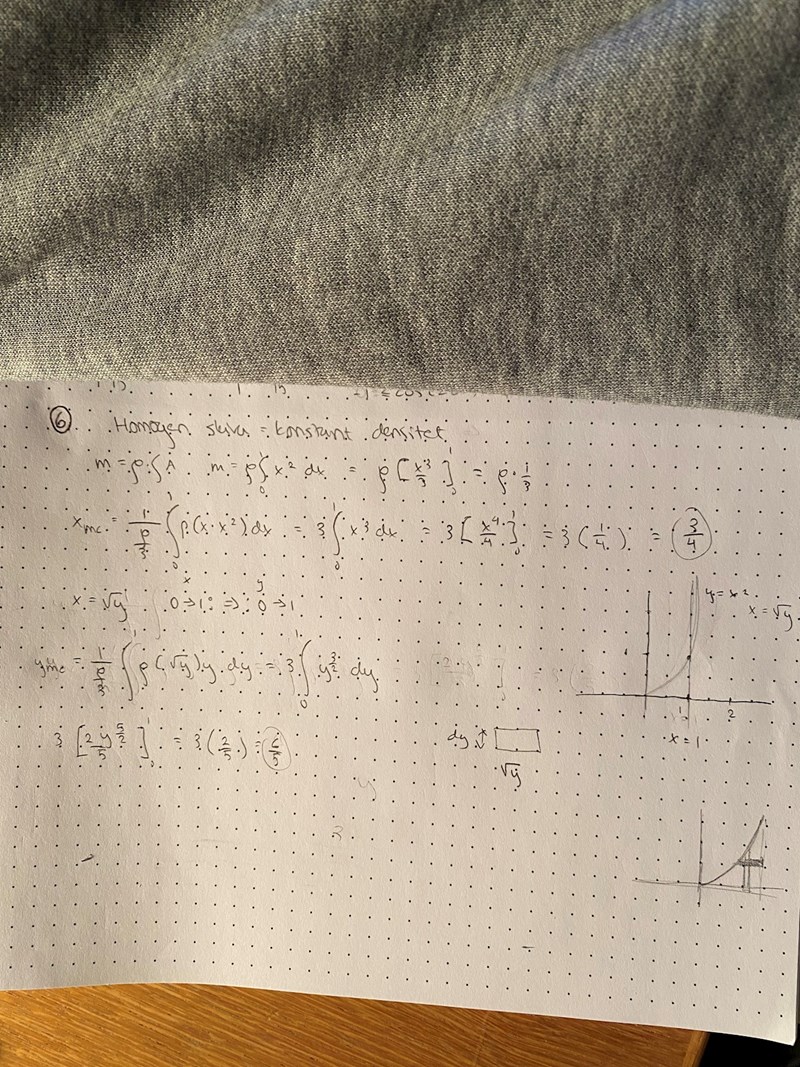 ⑥ Homogen skive = konstant densitet
m = ρ·∫A m = ρ∫₀¹ x² dx = ρ[x³/3]₀¹ = ρ·1/3
x_mc = 1/(ρ/3) ∫₀¹ ρ(x·x²)dx = 3∫₀¹ x³ dx = 3[x⁴/4]₀¹ = 3(1/4) = 3/4
x = √y x 0→1 ⇒ y 0→1
y = x²
x = √y
y_mc = 1/(ρ/3) ∫₀¹ ρ(√y)y dy = 3∫₀¹ y^(3/2) dy
1 2
x = 1
3[2y^(5/2)/5]₀¹ = 3(2/5) = 6/5
dy
√y